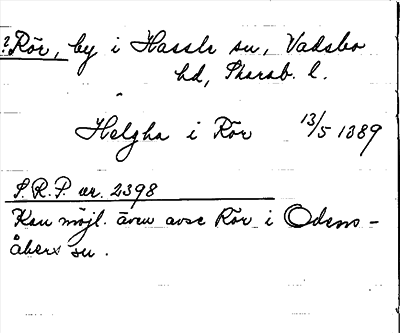 ? Rör, by i Hassle sn, Vadsbo
hd, Skarab. l.
Helgha i Rör 13/5 1389
S.R.P. nr. 2398
Kan möjl. även avse Rör i Odens-
åkers sn.